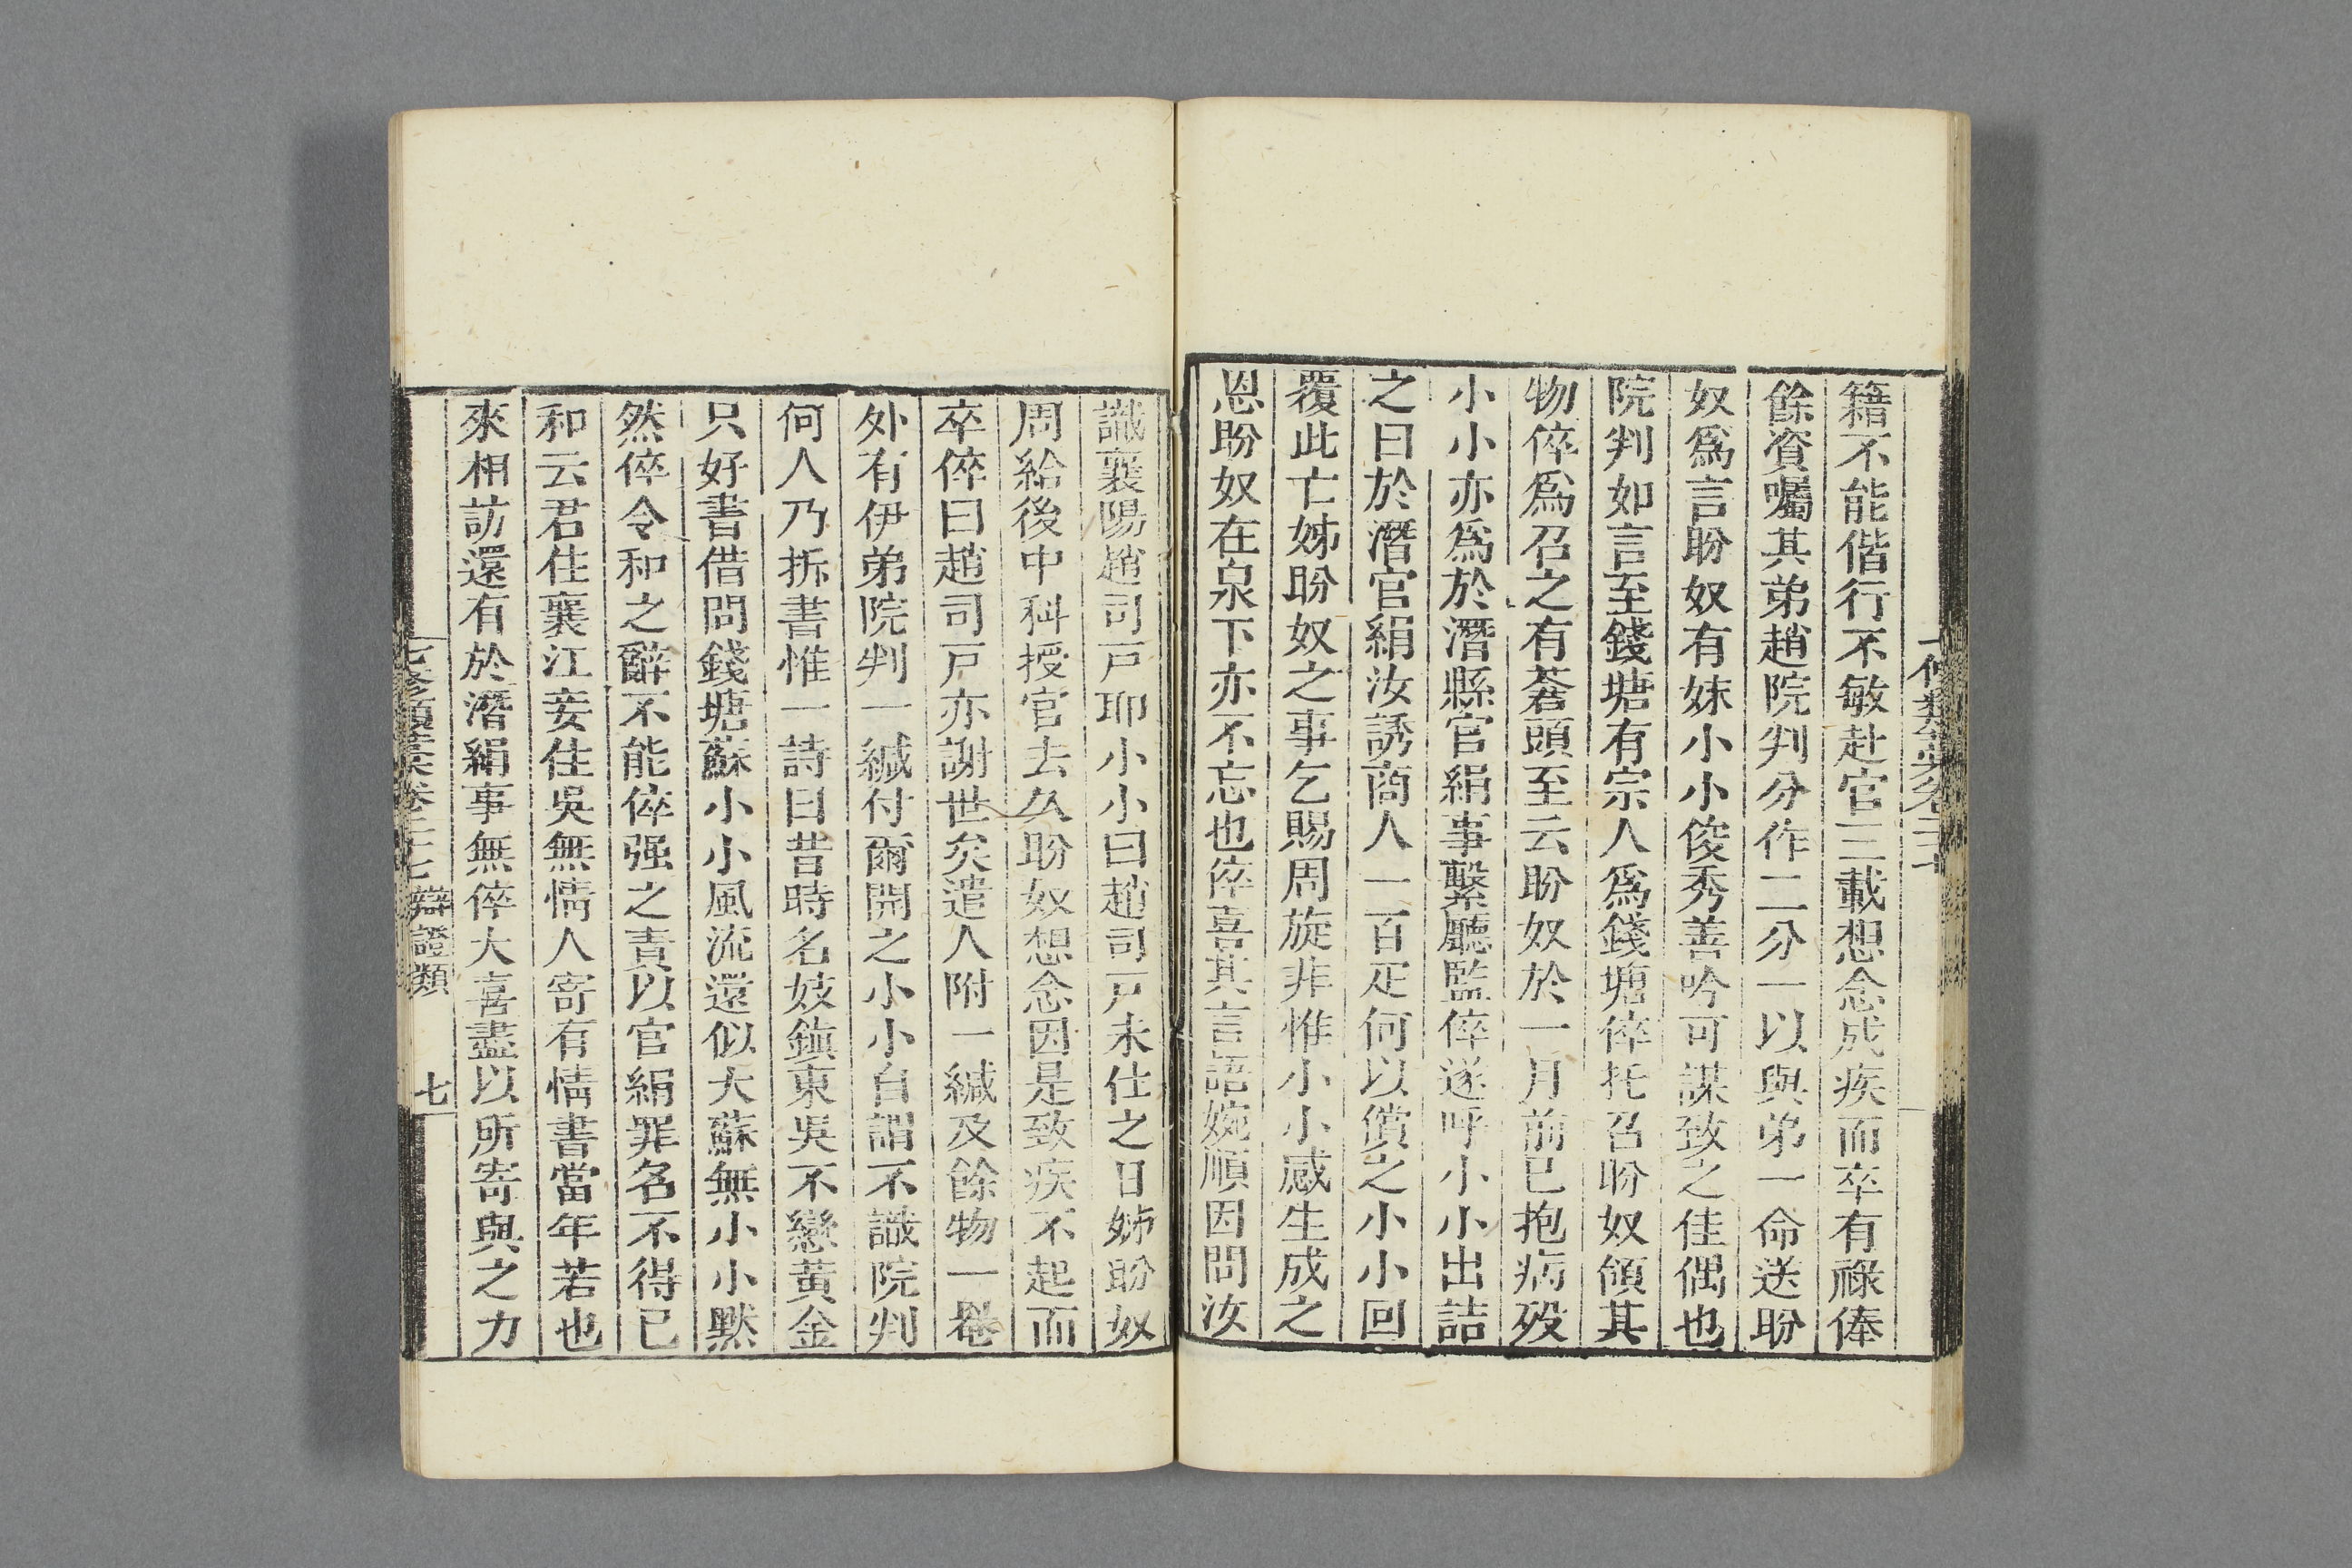 籍不能偕行不敏赴官三載想念成疾而卒有祿俸
餘資囑其弟趙院判分作二分一以與弟一命送盼
奴爲言盼奴有妹小小俊秀善吟可謀致之佳偶也
院判如言至錢塘有宗人爲錢塘倅托召盼奴領其
物倅爲召之有蒼頭至云盼奴於一月前已抱病歿
小小亦爲於潛縣官絹事繫廳監倅遂呼小小出詰
之曰於潛官絹汝誘商人一百疋何以償之小小回
覆此亡姊盼奴之事乞賜周旋非惟小小感生成之
恩盼奴在泉下亦不忘也倅喜其言語婉順因問汝
識襄陽趙司戶耶小小曰趙司戶未仕之日姊盼奴
周給後中科授官去久盼奴想念因是致疾不起而
卒倅曰趙司戶亦謝世矣遣人附一緘及餘物一罨
外有伊弟院判一緘付爾開之小小自謂不識院判
何人乃拆書惟一詩曰昔時名妓鎮東吳不戀黃金
只好書借問錢塘蘇小小風流還似大蘇無小小默
然倅令和之辭不能倅强之責以官絹罪名不得已
和云君住襄江妾住吳無情人寄有情書當年若也
來相訪還有於潛絹事無倅大喜盡以所寄與之力
七修類藁卷二十七 辯證類 七